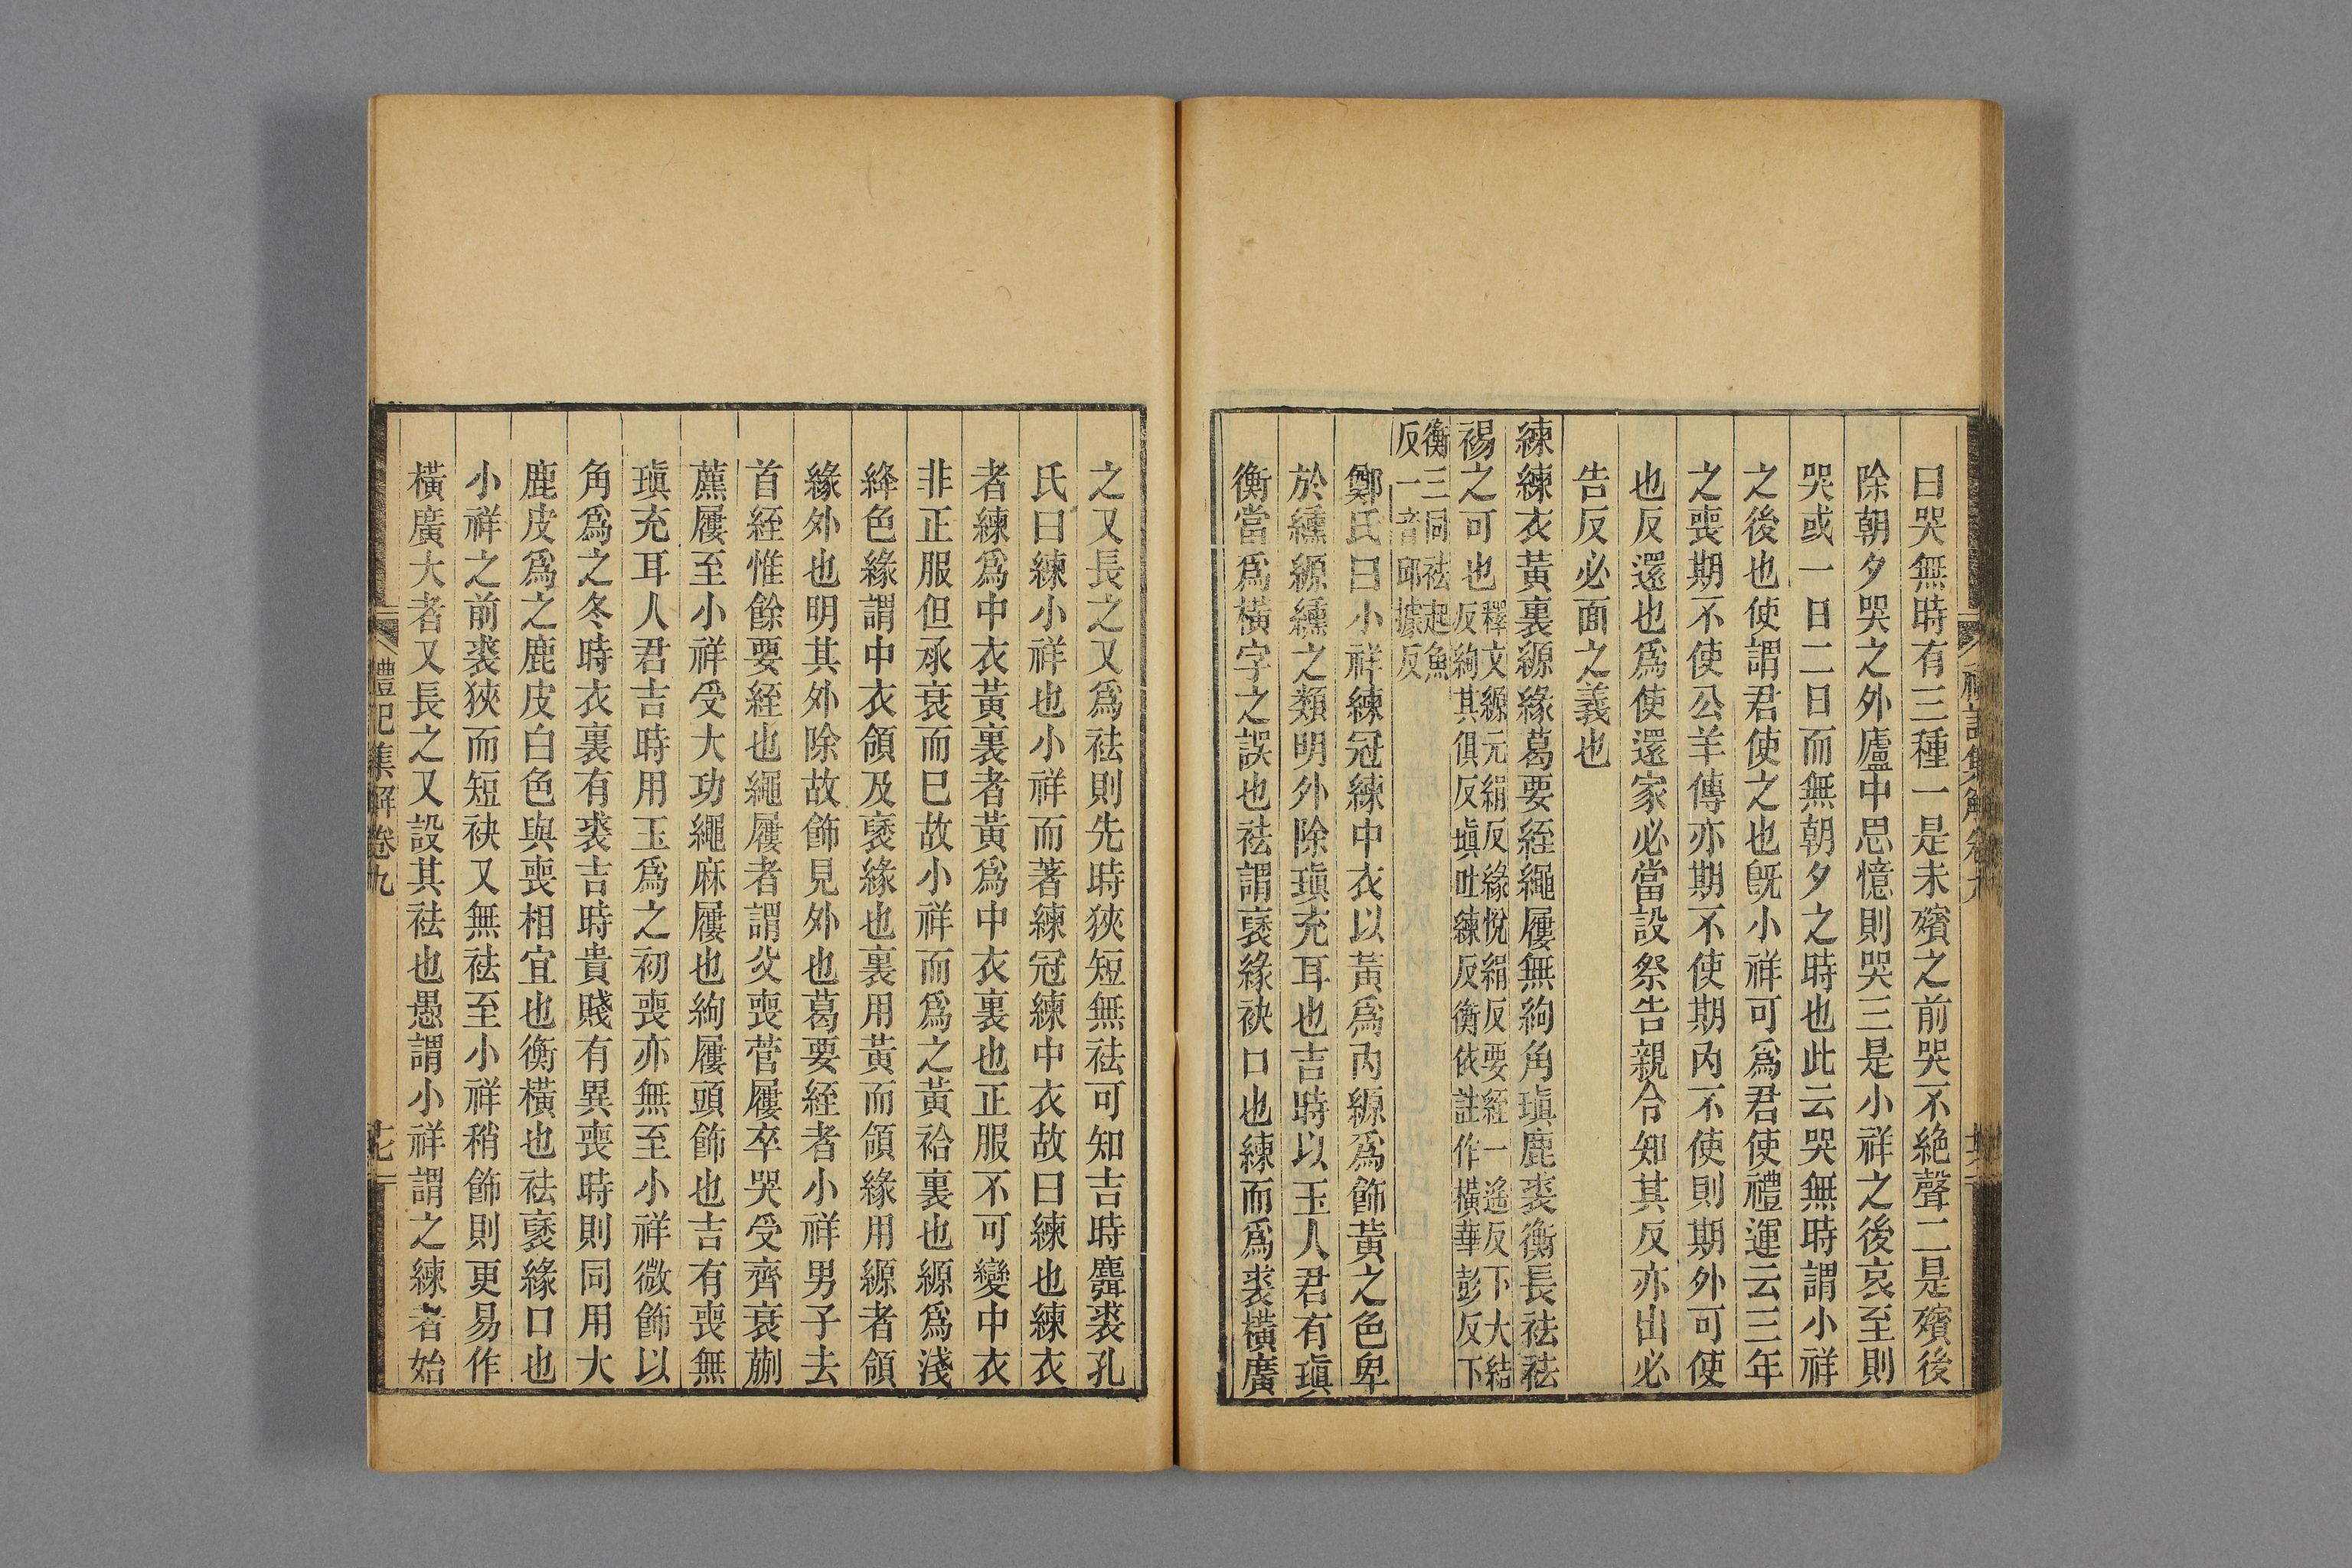 曰哭無時有三種一是未殯之前哭不絶聲二是殯後
除朝夕哭之外廬中思憶則哭三是小祥之後哀至則
哭或一日二日而無朝夕之時也此云哭無時謂小祥
之後也使謂君使之也旣小祥可爲君使禮運云三年
之喪期不使公羊傳亦期不使期內不使則期外可使
也反還也爲使還家必當設祭告親令知其反亦出必
告反必面之義也
練練衣黃裏縓緣葛要絰繩屨無絇角瑱鹿裘衡長祛祛
裼之可也釋文縓元絹反緣悅絹反要絰一遙反下大結
反絇其俱反瑱吐練反衡依註作橫華彭反下
衡三同祛起魚
反一音邱據反
鄭氏曰小祥練冠練中衣以黃爲內縓爲飾黃之色卑
於纁縓纁之類明外除瑱充耳也吉時以玉人君有瑱
衡當爲橫字之誤也祛謂褎緣袂口也練而爲裘橫廣
之又長之又爲祛則先時狹短無祛可知吉時麛裘孔
氏曰練小祥也小祥而著練冠練中衣故曰練也練衣
者練爲中衣黃裏者黃爲中衣裏也正服不可變中衣
非正服但承衰而巳故小祥而爲之黃袷裏也縓爲淺
絳色緣謂中衣領及褎緣也裏用黃而領緣用縓者領
緣外也明其外除故飾見外也葛要絰者小祥男子去
首絰惟餘要絰也繩屨者謂父喪菅屨卒哭受齊衰蒯
藨屨至小祥受大功繩麻屨也絇屨頭飾也吉有喪無
瑱充耳人君吉時用玉爲之初喪亦無至小祥微飾以
角爲之冬時衣裏有裘吉時貴賤有異喪時則同用大
鹿皮爲之鹿皮白色與喪相宜也衡橫也祛褎緣口也
小祥之前裘狹而短袂又無祛至小祥稍飾則更易作
橫廣大者又長之又設其祛也愚謂小祥謂之練者始
禮記集解卷九